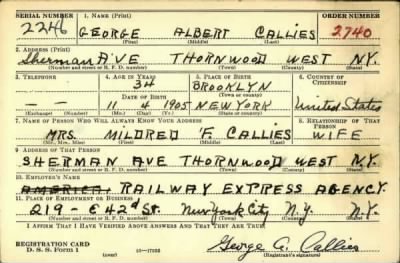 SERIAL NUMBER 1. NAME (Print) ORDER NUMBER
2246 GEORGE ALBERT CALLIES 2740
(First) (Middle) (Last)
2. ADDRESS (Print)
Sherman AVE THORNWOOD WEST N.Y.
(Number and street or R. F. D. number) (Town) (County) (State)
3. TELEPHONE 4. AGE IN YEARS 5. PLACE OF BIRTH 6. COUNTRY OF CITIZENSHIP
34 BROOKLYN
(Town or county)
DATE OF BIRTH
-- 11 4 1905 NEW YORK United States
(Exchange) (Number) (Mo.) (Day) (Yr.) (State or country)
7. NAME OF PERSON WHO WILL ALWAYS KNOW YOUR ADDRESS 8. RELATIONSHIP OF THAT PERSON
MRS. MILDRED F. CALLIES WIFE
(Mr., Mrs., Miss) (First) (Middle) (Last)
9. ADDRESS OF THAT PERSON
SHERMAN AVE THORNWOOD WEST N.Y.
(Number and street or R. F. D. number) (Town) (County) (State)
10. EMPLOYER'S NAME
AMERICA. RAILWAY EXTRESS AGENCY.
11. PLACE OF EMPLOYMENT OR BUSINESS
219 - E 42d St. New York City N.Y. N.Y.
(Number and street or R. F. D. number) (Town) (County) (State)
I AFFIRM THAT I HAVE VERIFIED ABOVE ANSWERS AND THAT THEY ARE TRUE.
REGISTRATION CARD
D. S. S. Form 1 (over) 16—17105 George A. Callies
(Registrant's signature)